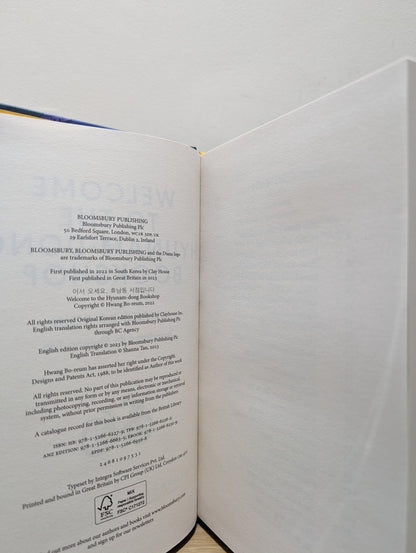 BLOOMSBURY PUBLISHING
Bloomsbury Publishing Plc
50 Bedford Square, London, WC1B 3DP, UK
29 Earlsfort Terrace, Dublin 2, Ireland
BLOOMSBURY, BLOOMSBURY PUBLISHING and the Diana logo
are trademarks of Bloomsbury Publishing Plc
First published in 2022 in South Korea by Clay House
First published in Great Britain in 2023
어서 오세요, 휴남동 서점입니다
Welcome to the Hyunam-dong Bookshop
Copyright © Hwang Bo-reum, 2022
All rights reserved Original Korean edition published by Clayhouse Inc.
English translation rights arranged with Bloomsbury Publishing Plc
through BC Agency
English edition copyright © 2023 by Bloomsbury Publishing Plc
English Translation © Shanna Tan, 2023
Hwang Bo-reum has asserted her right under the Copyright,
Designs and Patents Act, 1988, to be identified as Author of this work
All rights reserved. No part of this publication may be reproduced or
transmitted in any form or by any means, electronic or mechanical,
including photocopying, recording, or any information storage or retrieval
system, without prior permission in writing from the publishers
A catalogue record for this book is available from the British Library
ISBN: HB: 978-1-5266-6227-9; TPB:
ANZ EDITION: EBOOK:
EPDF:
2 4 6 8 10 9 7 5 3 1
Typeset by Integra Software Services Pvt. Ltd.
Printed and bound in Great Britain by CPI Group (UK) Ltd, Croydon
FSC
MIX
FSC® C171272
out more about our authors and books visit www.bloomsbury.com
and sign up for our newsletters
WELCOME